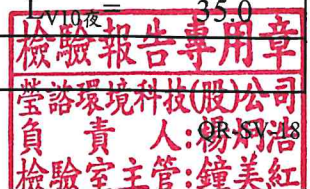 Lv10夜= 35.0
檢驗報告專用章
瑩諮環境科技(股)公司
負責人:楊炯浩
QR-SV-18
檢驗室主管:鐘美紅